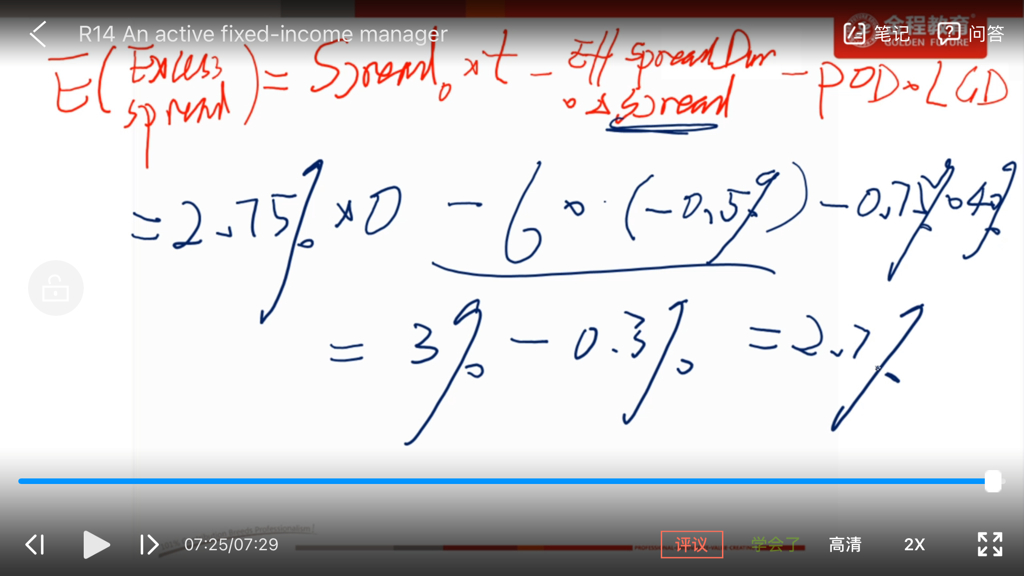 R14 An active fixed-income manager
金程教育
GOLDEN FUTURE
笔记
问答
E(Excess spread) = Spread₀ × t - Eff Spread Dur · Δ spread - POD × LGD
= 2.75% × 0 - 6 × (-0.5%) - 0.75% · 40%
= 3% - 0.3% = 2.7%
07:25/07:29
评议
学会了
高清
2X